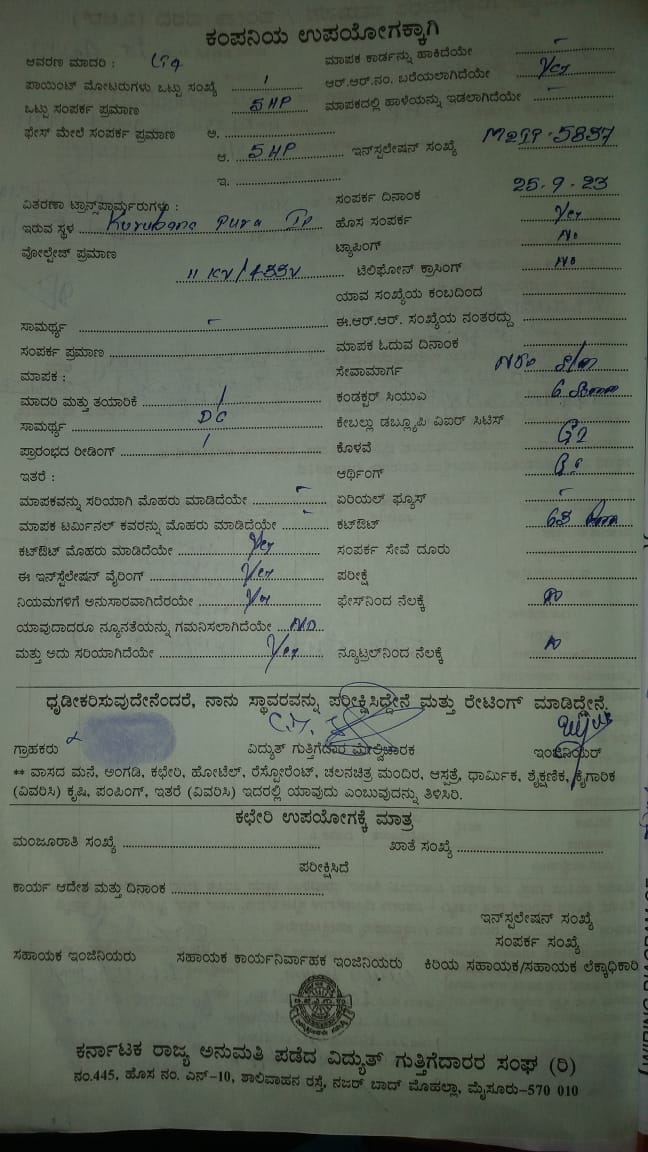 ಕಂಪನಿಯ ಉಪಯೋಗಕ್ಕಾಗಿ
ಆವರಣ ಮಾದರಿ : ಮಾಪಕ ಕಾರ್ಡನ್ನು ಹಾಕಿದೆಯೇ –
ಪಾಯಿಂಟ್ ಮೋಟರುಗಳು ಒಟ್ಟು ಸಂಖ್ಯೆ 1 ಆರ್.ಆರ್.ನಂ. ಬರೆಯಲಾಗಿದೆಯೇ Yes
ಒಟ್ಟು ಸಂಪರ್ಕ ಪ್ರಮಾಣ 5 HP ಮಾಪಕದಲ್ಲಿ ಹಾಳೆಯನ್ನು ಇಡಲಾಗಿದೆಯೇ –
ಫೇಸ್ ಮೇಲೆ ಸಂಪರ್ಕ ಪ್ರಮಾಣ ಅ.
ಆ. 5 HP ಇನ್‌ಸ್ಟಲೇಷನ್ ಸಂಖ್ಯೆ
ಇ.
ಸಂಪರ್ಕ ದಿನಾಂಕ 25-9-23
ವಿತರಣಾ ಟ್ರಾನ್ಸ್‌ಪಾರ್ಮರುಗಳು :
ಇರುವ ಸ್ಥಳ Kurubana Pura IP ಹೊಸ ಸಂಪರ್ಕ Yes
ಟ್ಯಾಪಿಂಗ್ No
ವೋಲ್ಟೇಜ್ ಪ್ರಮಾಣ
11 KV/433V ಟೆಲಿಫೋನ್ ಕ್ರಾಸಿಂಗ್ No
ಯಾವ ಸಂಖ್ಯೆಯ ಕಂಬದಿಂದ
ಸಾಮರ್ಥ್ಯ – ಈ.ಆರ್.ಆರ್. ಸಂಖ್ಯೆಯ ನಂತರದ್ದು
ಸಂಪರ್ಕ ಪ್ರಮಾಣ ಮಾಪಕ ಓದುವ ದಿನಾಂಕ
ಮಾಪಕ : ಸೇವಾಮಾರ್ಗ
ಮಾದರಿ ಮತ್ತು ತಯಾರಿಕೆ ಕಂಡಕ್ಟರ್ ಸಿಯುಎ
ಸಾಮರ್ಥ್ಯ DC ಕೇಬಲ್ಲು ಡಬ್ಲ್ಯೂಪಿ ವಿಐರ್ ಸಿಟಿಸ್
ಪ್ರಾರಂಭದ ರೀಡಿಂಗ್ ಕೊಳವೆ GI
ಇತರೆ : ಆರ್ಥಿಂಗ್
ಮಾಪಕವನ್ನು ಸರಿಯಾಗಿ ಮೊಹರು ಮಾಡಿದೆಯೇ – ಏರಿಯಲ್ ಫ್ಯೂಸ್ –
ಮಾಪಕ ಟರ್ಮಿನಲ್ ಕವರನ್ನು ಮೊಹರು ಮಾಡಿದೆಯೇ – ಕಟ್‌ಔಟ್
ಕಟ್‌ಔಟ್ ಮೊಹರು ಮಾಡಿದೆಯೇ Yes ಸಂಪರ್ಕ ಸೇವೆ ದೂರು
ಈ ಇನ್‌ಸ್ಟೆಲೇಷನ್ ವೈರಿಂಗ್ Yes ಪರೀಕ್ಷೆ
ನಿಯಮಗಳಿಗೆ ಅನುಸಾರವಾಗಿದೆರಯೇ Yes ಫೇಸ್‌ನಿಂದ ನೆಲಕ್ಕೆ
ಯಾವುದಾದರೂ ನ್ಯೂನತೆಯನ್ನು ಗಮನಿಸಲಾಗಿದೆಯೇ NO
ಮತ್ತು ಅದು ಸರಿಯಾಗಿದೆಯೇ Yes ನ್ಯೂಟ್ರಲ್‌ನಿಂದ ನೆಲಕ್ಕೆ
ಧೃಡೀಕರಿಸುವುದೇನೆಂದರೆ, ನಾನು ಸ್ಥಾವರವನ್ನು ಪರೀಕ್ಷಿಸಿದ್ದೇನೆ ಮತ್ತು ರೇಟಿಂಗ್ ಮಾಡಿದ್ದೇನೆ.
ಗ್ರಾಹಕರು ವಿದ್ಯುತ್ ಗುತ್ತಿಗೆದಾರ ಮೇಲ್ವಿಚಾರಕ ಇಂಜಿನಿಯರ್
** ವಾಸದ ಮನೆ, ಅಂಗಡಿ, ಕಛೇರಿ, ಹೋಟೆಲ್, ರೆಸ್ಟೋರೆಂಟ್, ಚಲನಚಿತ್ರ ಮಂದಿರ, ಆಸ್ಪತ್ರೆ, ಧಾರ್ಮಿಕ, ಶೈಕ್ಷಣಿಕ, ಕೈಗಾರಿಕ
(ವಿವರಿಸಿ) ಕೃಷಿ, ಪಂಪಿಂಗ್, ಇತರೆ (ವಿವರಿಸಿ) ಇದರಲ್ಲಿ ಯಾವುದು ಎಂಬುವುದನ್ನು ತಿಳಿಸಿರಿ.
ಕಛೇರಿ ಉಪಯೋಗಕ್ಕೆ ಮಾತ್ರ
ಮಂಜೂರಾತಿ ಸಂಖ್ಯೆ ಖಾತೆ ಸಂಖ್ಯೆ
ಪರೀಕ್ಷಿಸಿದೆ
ಕಾರ್ಯ ಆದೇಶ ಮತ್ತು ದಿನಾಂಕ
ಇನ್‌ಸ್ಟಲೇಷನ್ ಸಂಖ್ಯೆ
ಸಂಪರ್ಕ ಸಂಖ್ಯೆ
ಸಹಾಯಕ ಇಂಜಿನಿಯರು ಸಹಾಯಕ ಕಾರ್ಯನಿರ್ವಾಹಕ ಇಂಜಿನಿಯರು ಕಿರಿಯ ಸಹಾಯಕ/ಸಹಾಯಕ ಲೆಕ್ಕಾಧಿಕಾರಿ
ಕರ್ನಾಟಕ ರಾಜ್ಯ ಅನುಮತಿ ಪಡೆದ ವಿದ್ಯುತ್ ಗುತ್ತಿಗೆದಾರರ ಸಂಘ (ರಿ)
ನಂ.445, ಹೊಸ ನಂ. ಎನ್-10, ಶಾಲಿವಾಹನ ರಸ್ತೆ, ನಜರ್ ಬಾದ್ ಮೊಹಲ್ಲಾ, ಮೈಸೂರು-570 010